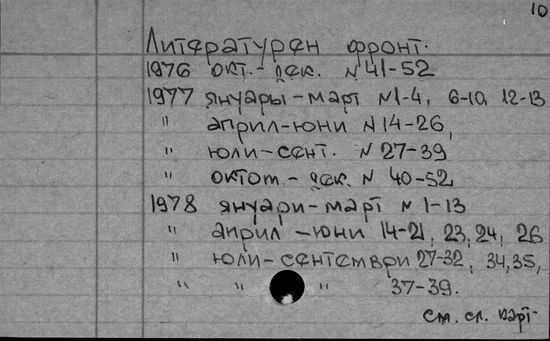 10
Литературен фронт.
1976 окт.- дек. N 41-52
1977 януары-март N1-4, 6-10, 12-13
" април-юни N 14-26,
" юли-сент. N 27-39
" октом.- дек. N 40-52
1978 януари-март N 1-13
" април -юни 14-21, 23, 24, 26
" юли-септември 27-32, 34, 35,
" " " 37-39.
см. сл. карт.